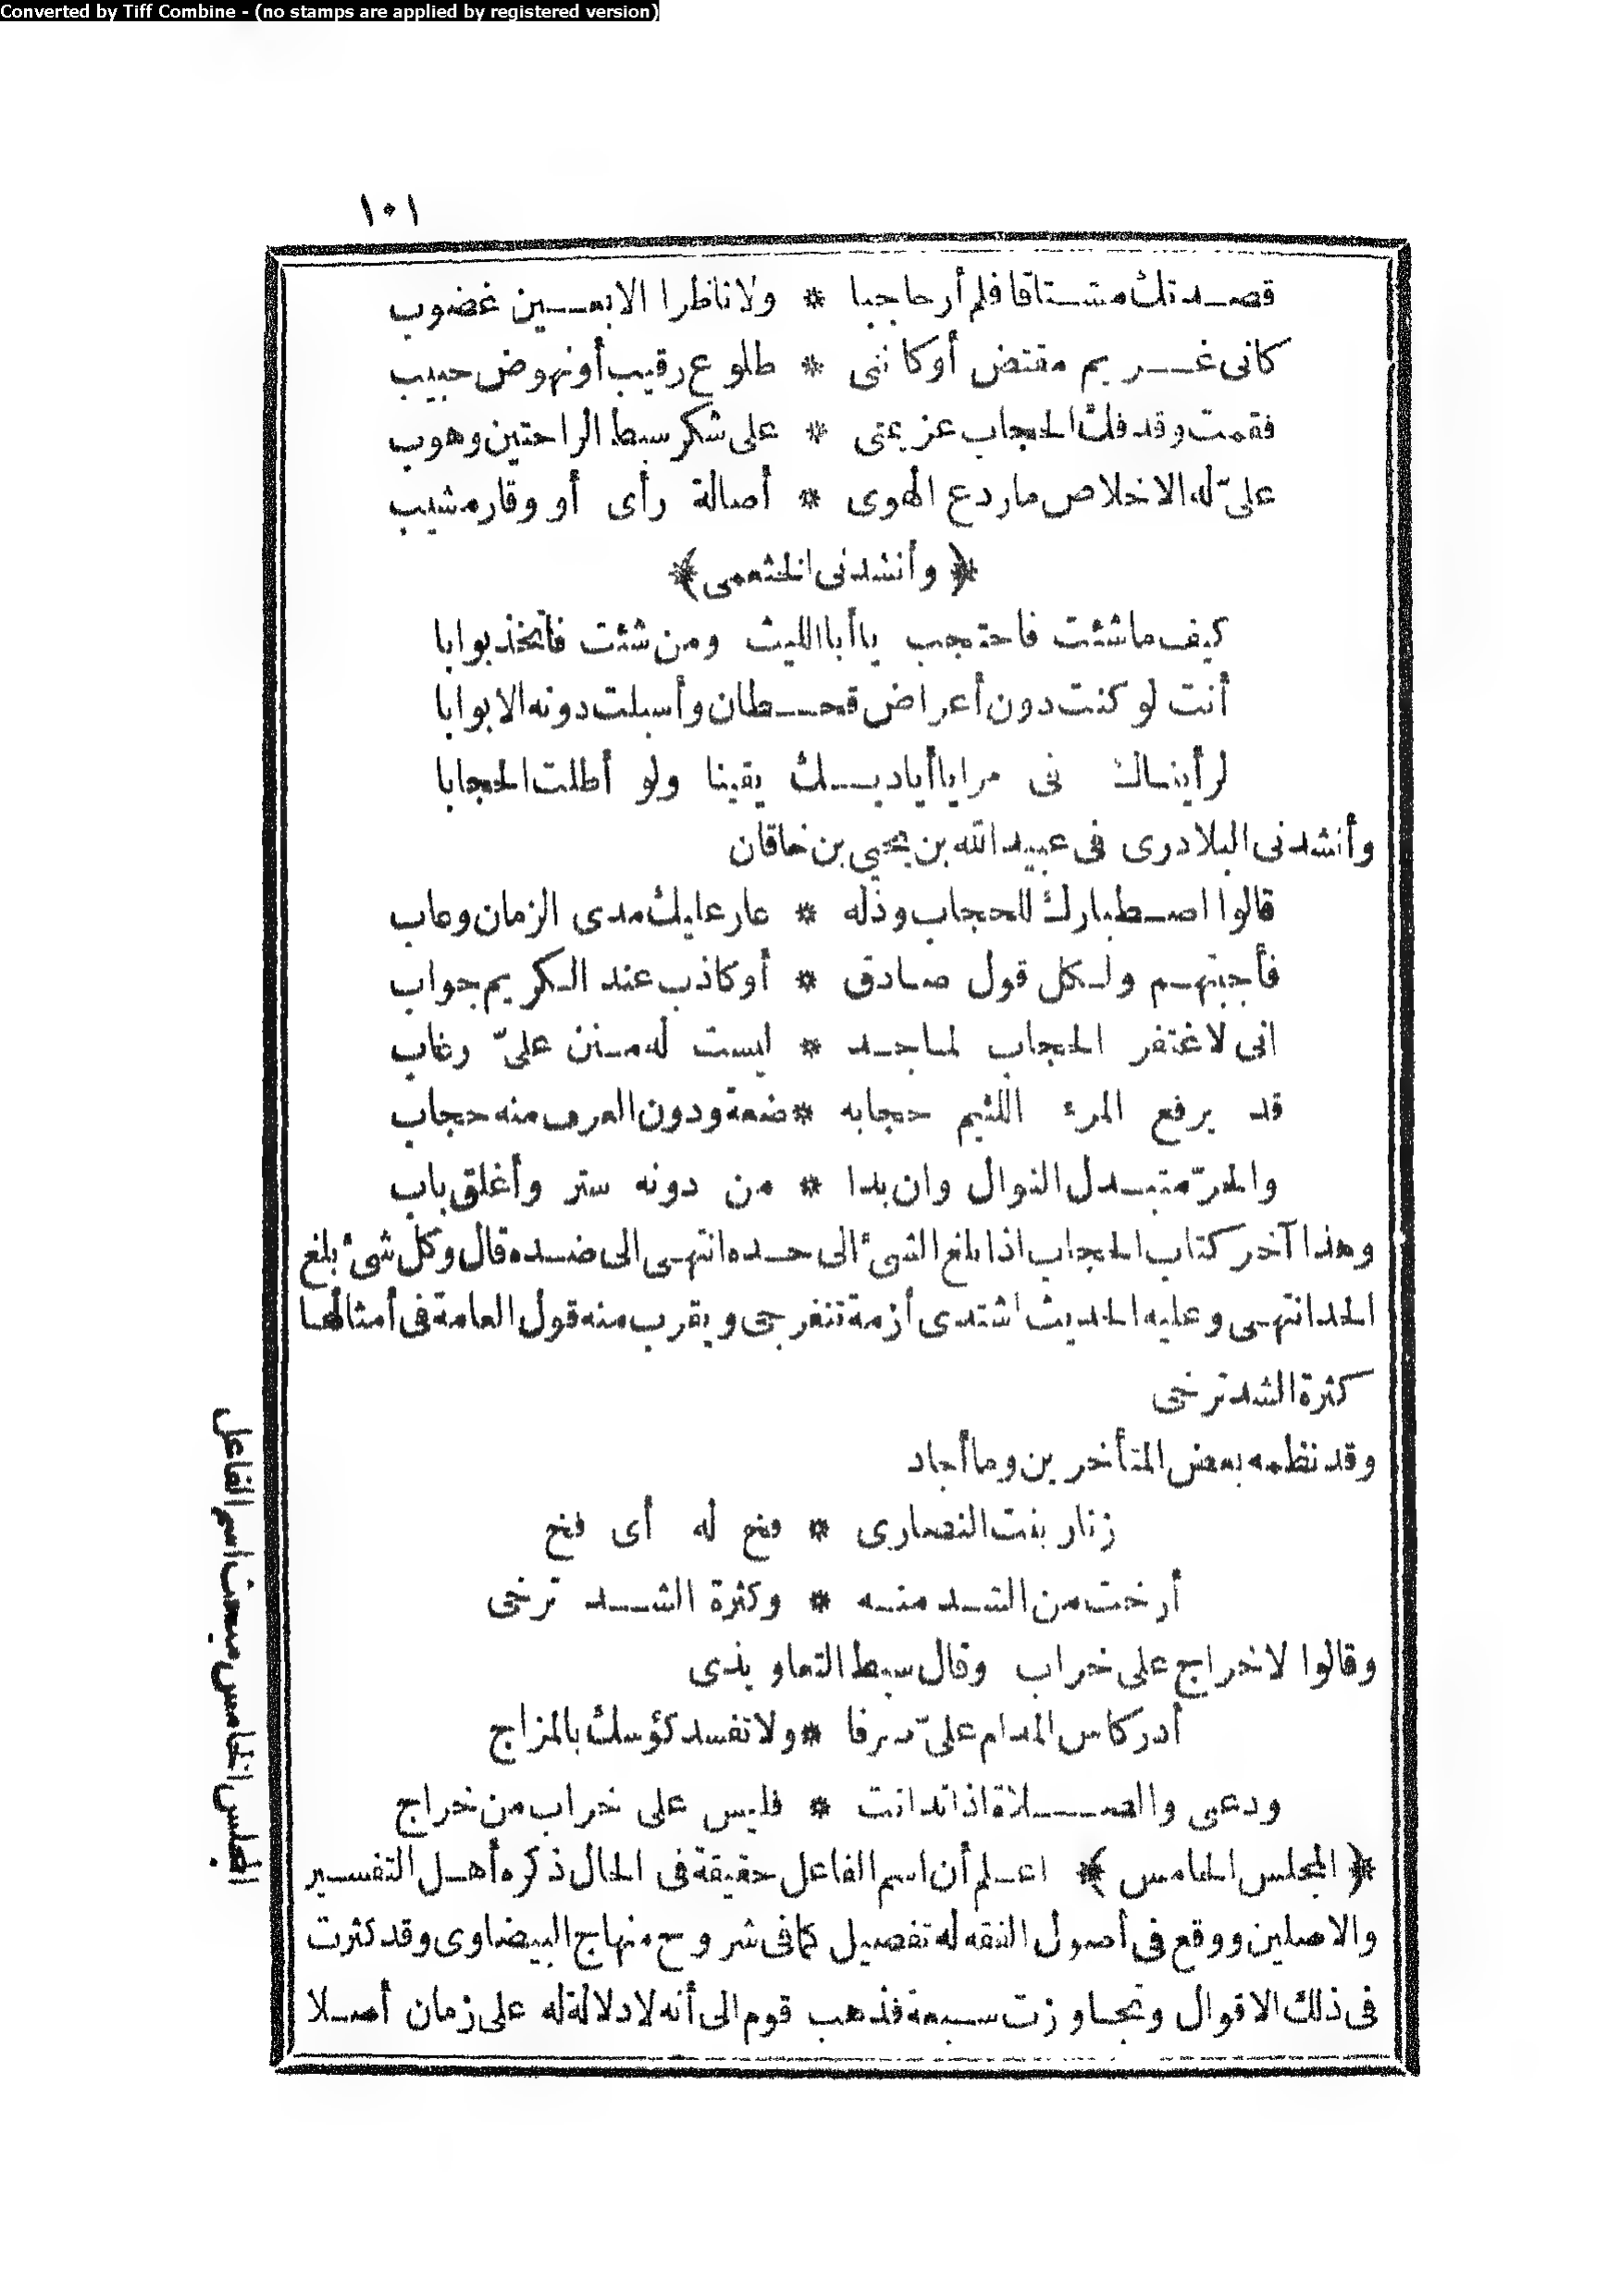 Converted by Tiff Combine - (no stamps are applied by registered version)
١٠١
قصدتك مشتاقا فلم أر حاجبا * ولا ناظرا الا بعين غضوب
كانى غريم مقتض أو كاننى * طلوع رقيب أو نهوض حبيب
فقمت وقد فلّ الحجاب عزيمتى * على شكر سبط الراحتين وهوب
علىّ له الاخلاص ما ردع الهوى * أصالة رأى أو وقار مشيب
﴿وأنشدنى الخثعمى﴾
كيف ما شئت فاحتجب يا أبا الليث ومن شئت فاتخذ بوابا
أنت لو كنت دون أعراض قحطان وأسبلت دونه الابوابا
لرأيناك فى مرايا أياديك يقينا ولو أطلت الحجابا
وأنشدنى البلادرى فى عبيد الله بن يحيى بن خاقان
قالوا اصطبارك للحجاب وذله * عار عليك مدى الزمان وعاب
فأجبتهم ولكل قول صادق * أو كاذب عند الكريم جواب
انى لاغتفر الحجاب لماجد * ليست له منن علىّ رغاب
قد يرفع المرء اللئيم حجابه * ضعة ودون العرف منه حجاب
والحرّ مبتذل النوال وان بدا * من دونه ستر وأغلق باب
وهذا آخر كتاب الحجاب اذا بلغ الشئ الى حده انتهى الى ضده قال وكل شئ بلغ
الحد انتهى وعليه الحديث اشتدى أزمة تنفرجى ويقرب منه قول العامة فى أمثالها
كثرة الشد ترخى
وقد نظمه بعض المتأخرين وما أجاد
زنار بنت النصارى * فخ له أى فخ
أرخت من الشد منه * وكثرة الشد ترخى
وقالوا لا خراج على خراب وقال سبط التعاويذى
أدر كاس المدام علىّ صرفا * ولا تفسد كؤسك بالمزاج
ودعى والصلاة اذا تدانت * فليس على خراب من خراج
﴿المجلس الخامس﴾ اعلم أن اسم الفاعل حقيقة فى الحال ذكره أهل التفسير
والاصلين ووقع فى أصول الفقه له تفصيل كما فى شروح منهاج البيضاوى وقد كثرت
فى ذلك الاقوال وتجاوزت سبعة فذهب قوم الى أنه لا دلالة له على زمان أصلا
المجلس الخامس مبحث اسم الفاعل